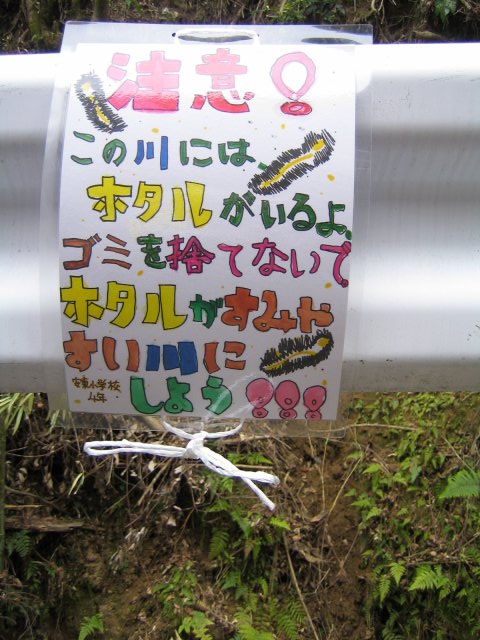 注意!
この川には、
ホタルがいるよ、
ゴミを捨てないで、
ホタルがすみや
すい川に
しよう!!!
安東小学校
4年